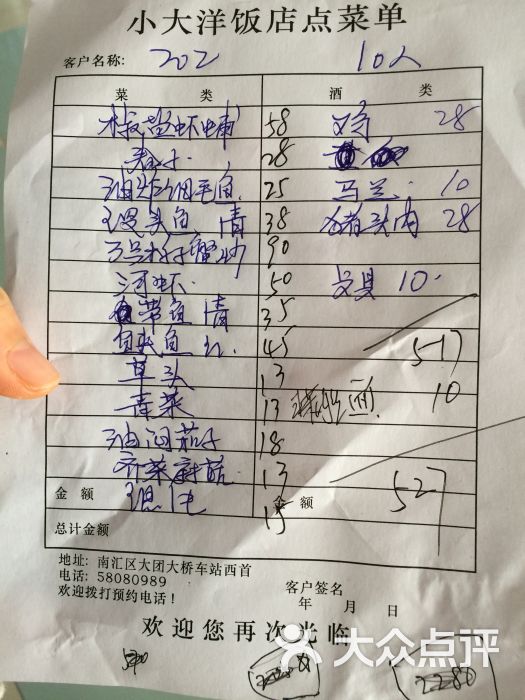 小大洋饭店点菜单
客户名称: 202 10人
菜 类 酒 类
椒盐虾 58 28
28
油炸 鱼 25 马兰 10
鱼 清 38 猪头肉 28
蟹炒 90
河虾 50 10
带鱼 清 35
鱼 红 45 517
草头 13 10
青菜 13 面
油闷茄子 18
荠菜 菇 13
金 额 15 金 额 527
总计金额
地址: 南汇区大团大桥车站西首
电话: 58080989
欢迎拨打预约电话!
客户签名
年 月 日
欢迎您再次光临
大众点评
2280